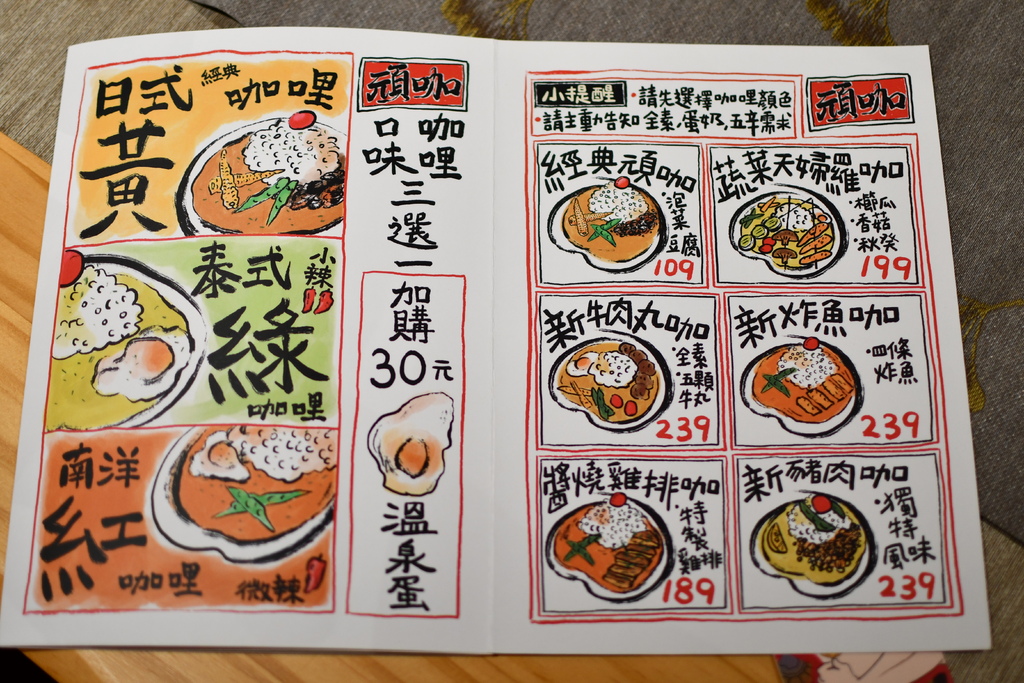 日式
經典
咖哩
黃
泰式
小辣
綠
咖哩
南洋
紅
咖哩
微辣
頑咖
咖哩
口味
三選一
加購
30元
溫泉蛋
小提醒
·請先選擇咖哩顏色
·請主動告知 全素,蛋奶,五辛需求
頑咖
經典頑咖
·泡菜
·豆腐
109
蔬菜天婦羅咖
·櫛瓜
·香菇
·秋葵
199
新牛肉丸咖
·全素
·五顆牛丸
239
新炸魚咖
·四條炸魚
239
醬燒雞排咖
·特製雞排
189
新豬肉咖
·獨特風味
239